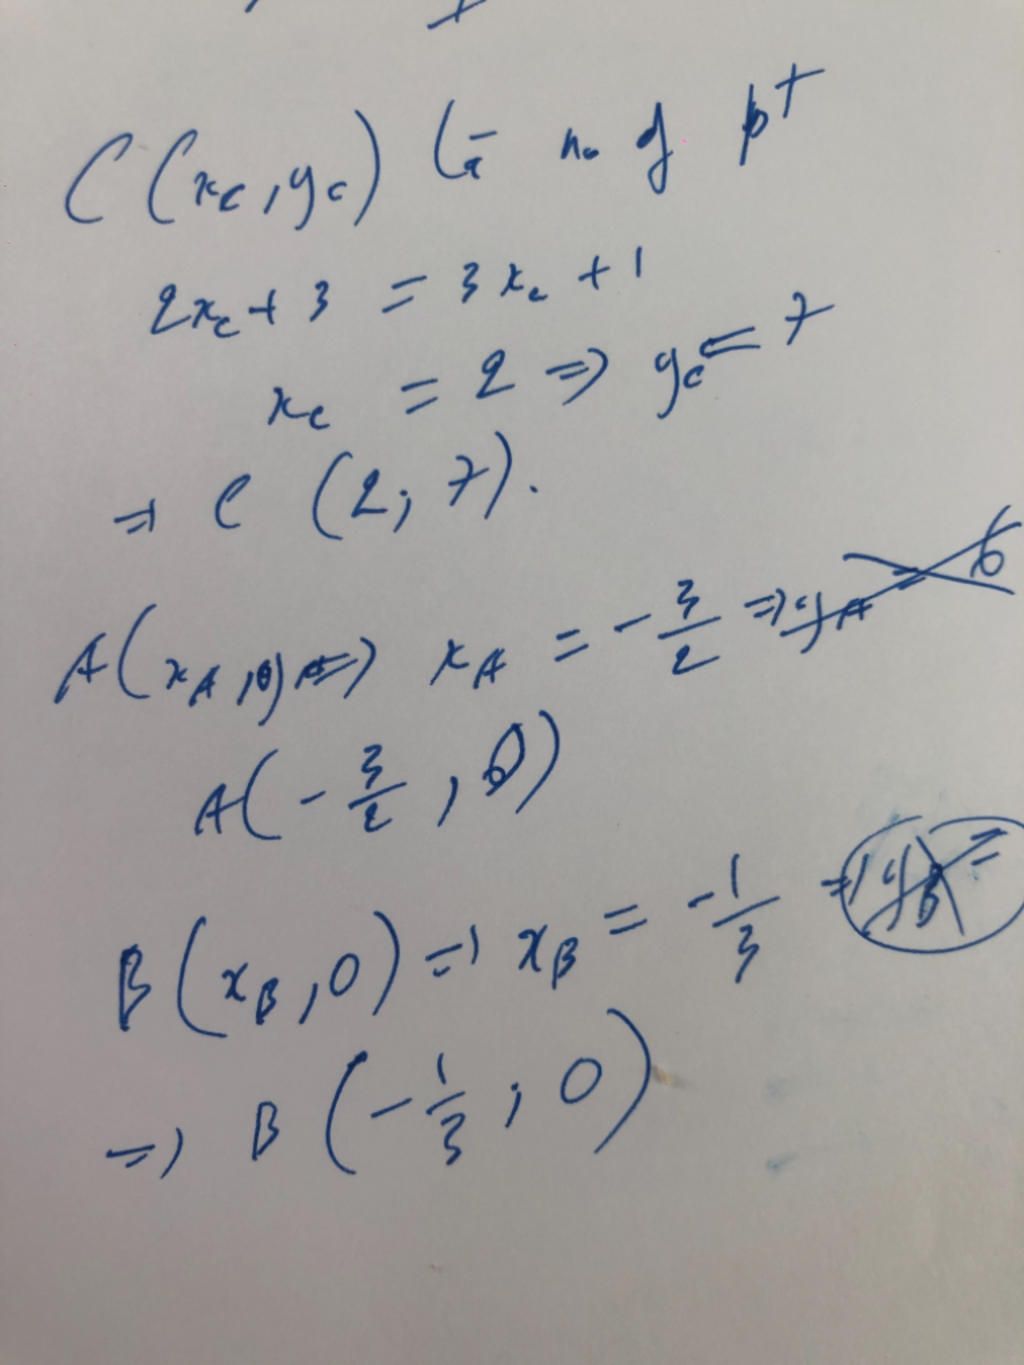 C(x_C, y_C) là no of pt
2x_C + 3 = 3x_C + 1
x_C = 2 => y_C = 7
=> C (2; 7).
A(x_A, 0) => x_A = -3/2 => y_A = 6
A(-3/2, 0)
B(x_B, 0) => x_B = -1/3 => y_B =
=> B(-1/3; 0)